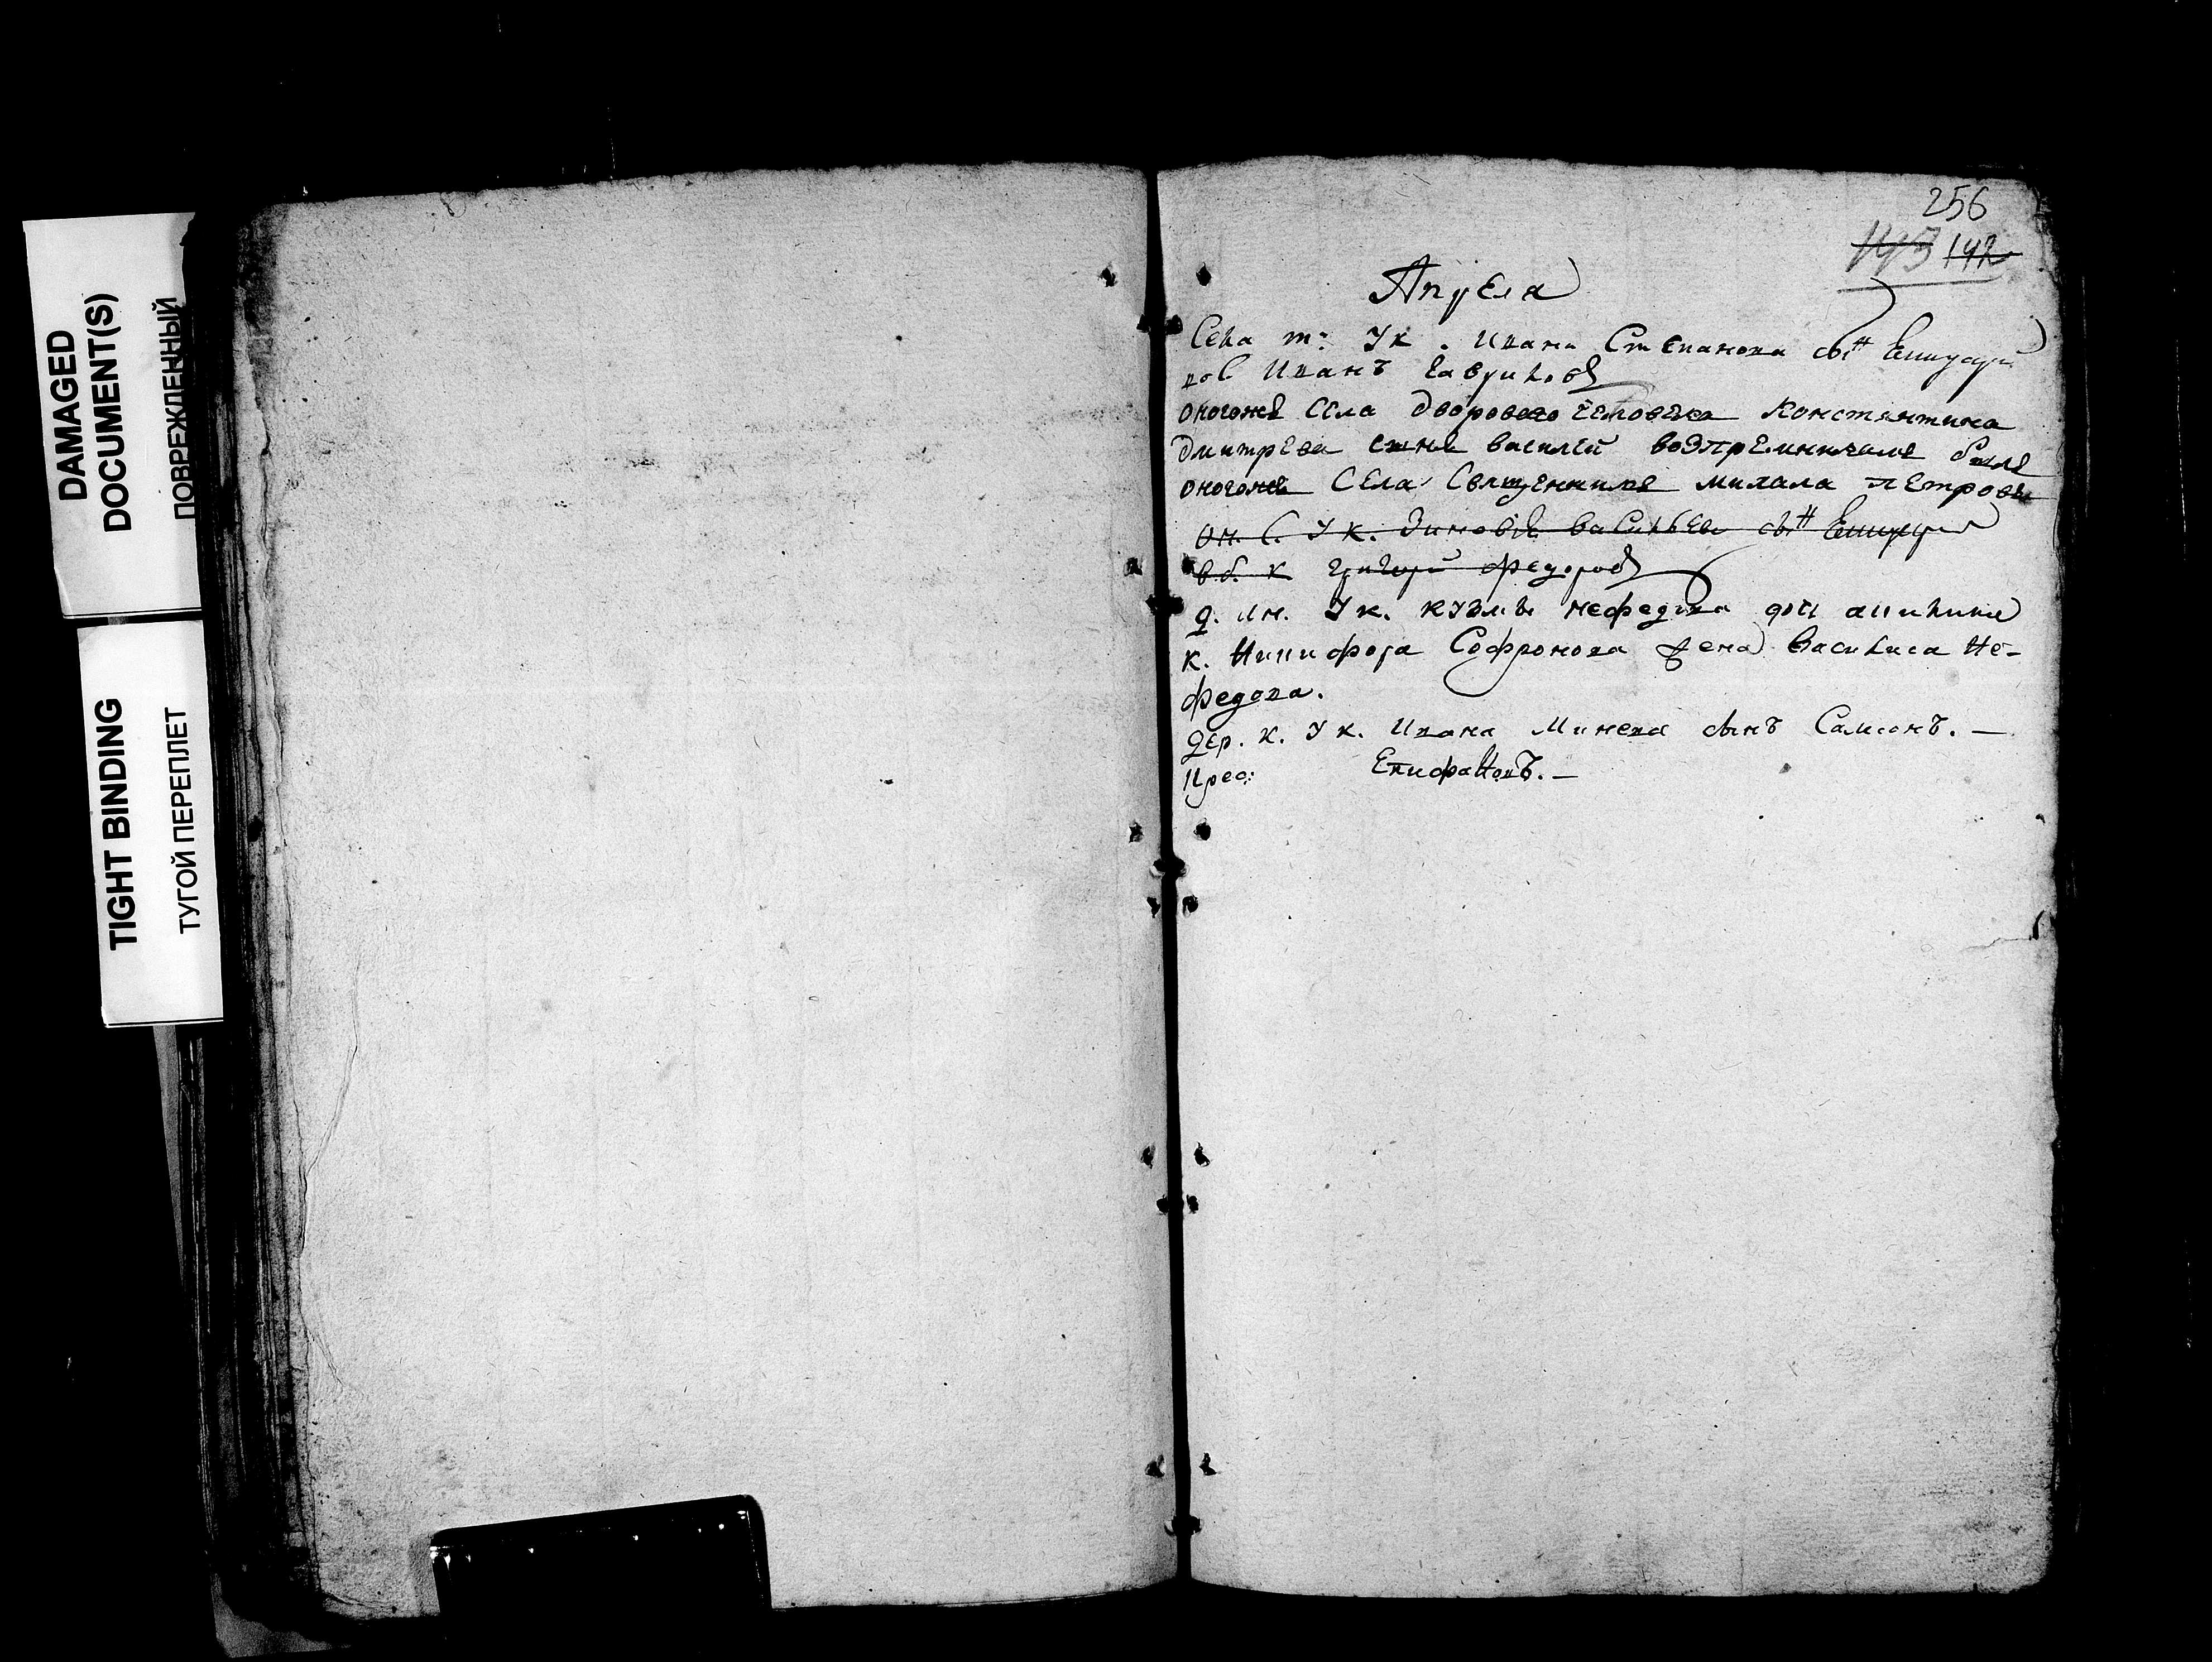 DAMAGED
DOCUMENT(S)
ПОВРЕЖДЕННЫЙ
TIGHT BINDING
ТУГОЙ ПЕРЕПЛЕТ
256
142
Апреля
Села т: У к. Ивана Степанова сын
Иванъ Гавриловъ
оногоже села дворового человека константина
дмитрева сынъ василей воспреемничалъ былъ
оногоже села священникъ михаила петровъ
он. с. У к. Зиновия Васильева сын
в. б. к григорий федоровъ
д. ин. У к. кузмы нефедова дочь
к. Никифора Софронова жена василиса Не-
федова.
дер. к. У к. Ивана Минеева сынъ Самсонъ. —
Епифановъ. —